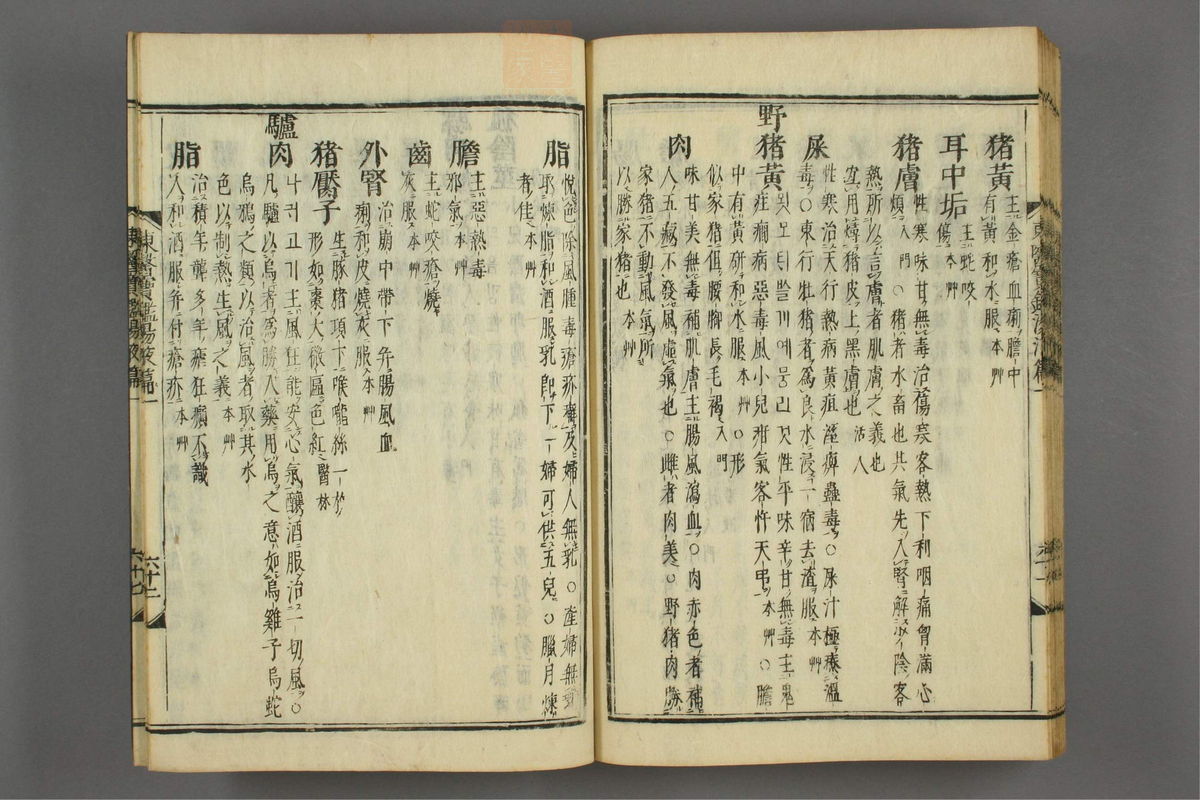 猪黃 主金瘡血痢膽中
有黃和水服本艸
耳中垢 主蛇咬
傷本艸
猪膚 性寒味甘無毒治傷寒客熱下利咽痛胷滿心
煩入門○猪者水畜也其氣先入腎解少陰客
熱所以言膚者肌膚之義也
宜用燖猪皮上黑膚也活人
屎 性寒治天行熱病黃疸濕痺蠱毒○屎汁極療溫
毒○東行牡猪者爲良水浸一宿去渣服本艸
野猪黃 性平味辛甘無毒主鬼
疰癎病惡毒風小兒疳氣客忤天弔本艸○膽
中有黃研和水服本艸○形
似家猪但腰脚長毛褐入門
肉 味甘美無毒補肌膚主腸風瀉血○肉赤色者補
人五藏不發風虛氣也○雌者肉美○野猪肉勝
家猪不動風氣所
以勝家猪也本艸
脂 悅色除風腫毒瘡疥癬及婦人無乳○産婦無乳
取煉脂和酒服乳卽下一婦可供五兒○臘月煉
者佳本艸
膽 主惡熱毒
邪氣本艸
齒 主蛇咬瘡燒
灰服本艸
外腎 治崩中帶下幷腸風血
痢和皮燒灰服本艸
猪靨子 生豚猪項下喉嚨絲一枚
形如棗大微匾色紅醫林
驢肉 나귀고기主風狂能安心氣釀酒服治一切風○
凡驢以烏者爲勝入藥用烏之意如烏雞子烏蛇
烏鴉之類以治風者取其水
色以制熱生風之義本艸
脂 治積年聾多年瘧狂癲不識
人和酒服幷付瘡疥本艸
東醫寶鑑湯液篇一
六十二